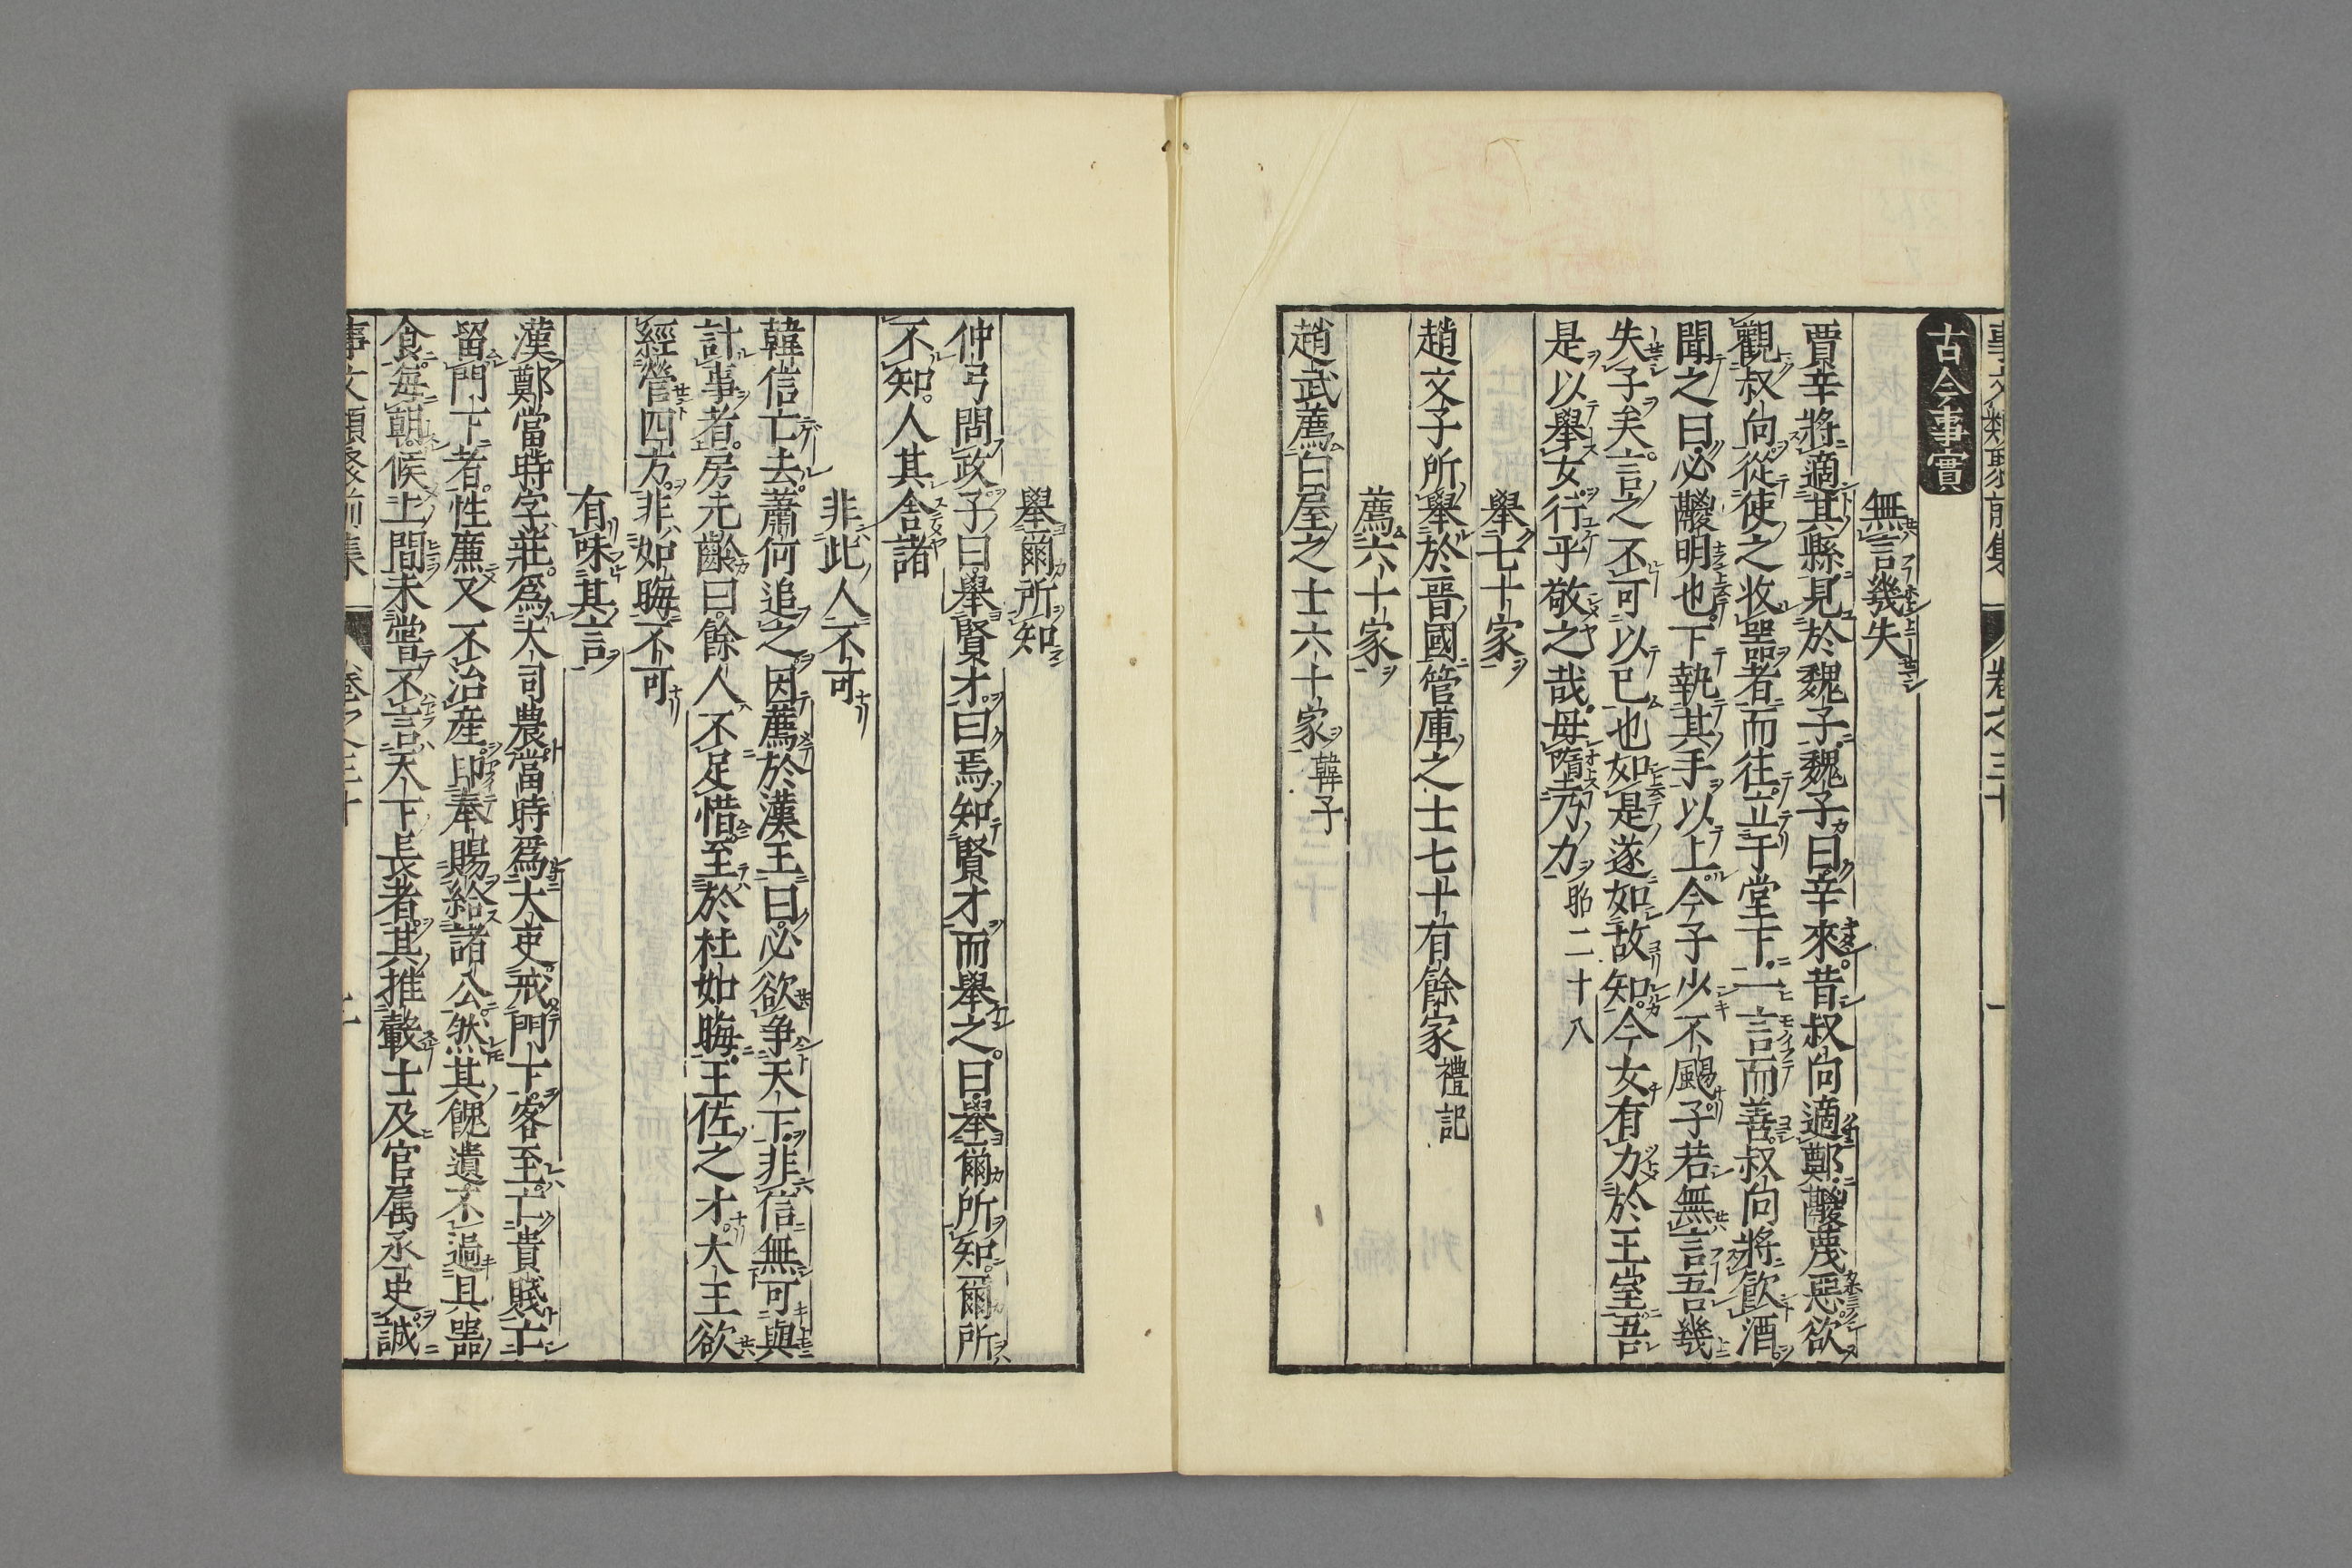 古今事實
無言幾失
賈辛將適其縣見於魏子魏子曰辛來昔叔向適鄭鬷蔑惡欲
觀叔向從使之收器者而往立于堂下一言而善叔向將飲酒
聞之曰必鬷明也下執其手以上今子少不颺子若無言吾幾
失子矣言之不可以已也如是遂如故知今女有力於王室吾
是以舉女行乎敬之哉毋隋乃力昭二十八
舉七十家
趙文子所舉於晋國管庫之士七十有餘家禮記
薦六十家
趙武薦白屋之士六十家韓子
舉爾所知
仲弓問政子曰舉賢才曰焉知賢才而舉之曰舉爾所知爾所
不知人其舍諸
非此人不可
韓信亡去蕭何追之因薦於漢王曰必欲争天下非信無可與
計事者房元齡曰餘人不足惜至於杜如晦王佐之才大王欲
經營四方非如晦不可
有味其言
漢鄭當時字莊為大司農當時為大吏戒門下客至亡貴賤亡
留門下者性廉又不治産卬奉賜給諸公然其餽遺不過具器
食每朝候上間未嘗不言天下長者其推轂士及官属丞吏誠